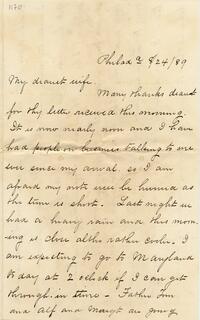 1170
Philad a 8/24/89
My dearest wife.
Many thanks dearest
for thy letter received this morning.
It is now nearly noon and I have
had people on business talking to me
ever since my arrival. so I am
afraid my note will be hurried as
the time is short. Last night we
had a heavy rain and this morn
ing is clear altho rather cooler. I
am expecting to go to Maryland
to day at 2 oclock if I can get
through in time - Father
and Alf and Margt are going